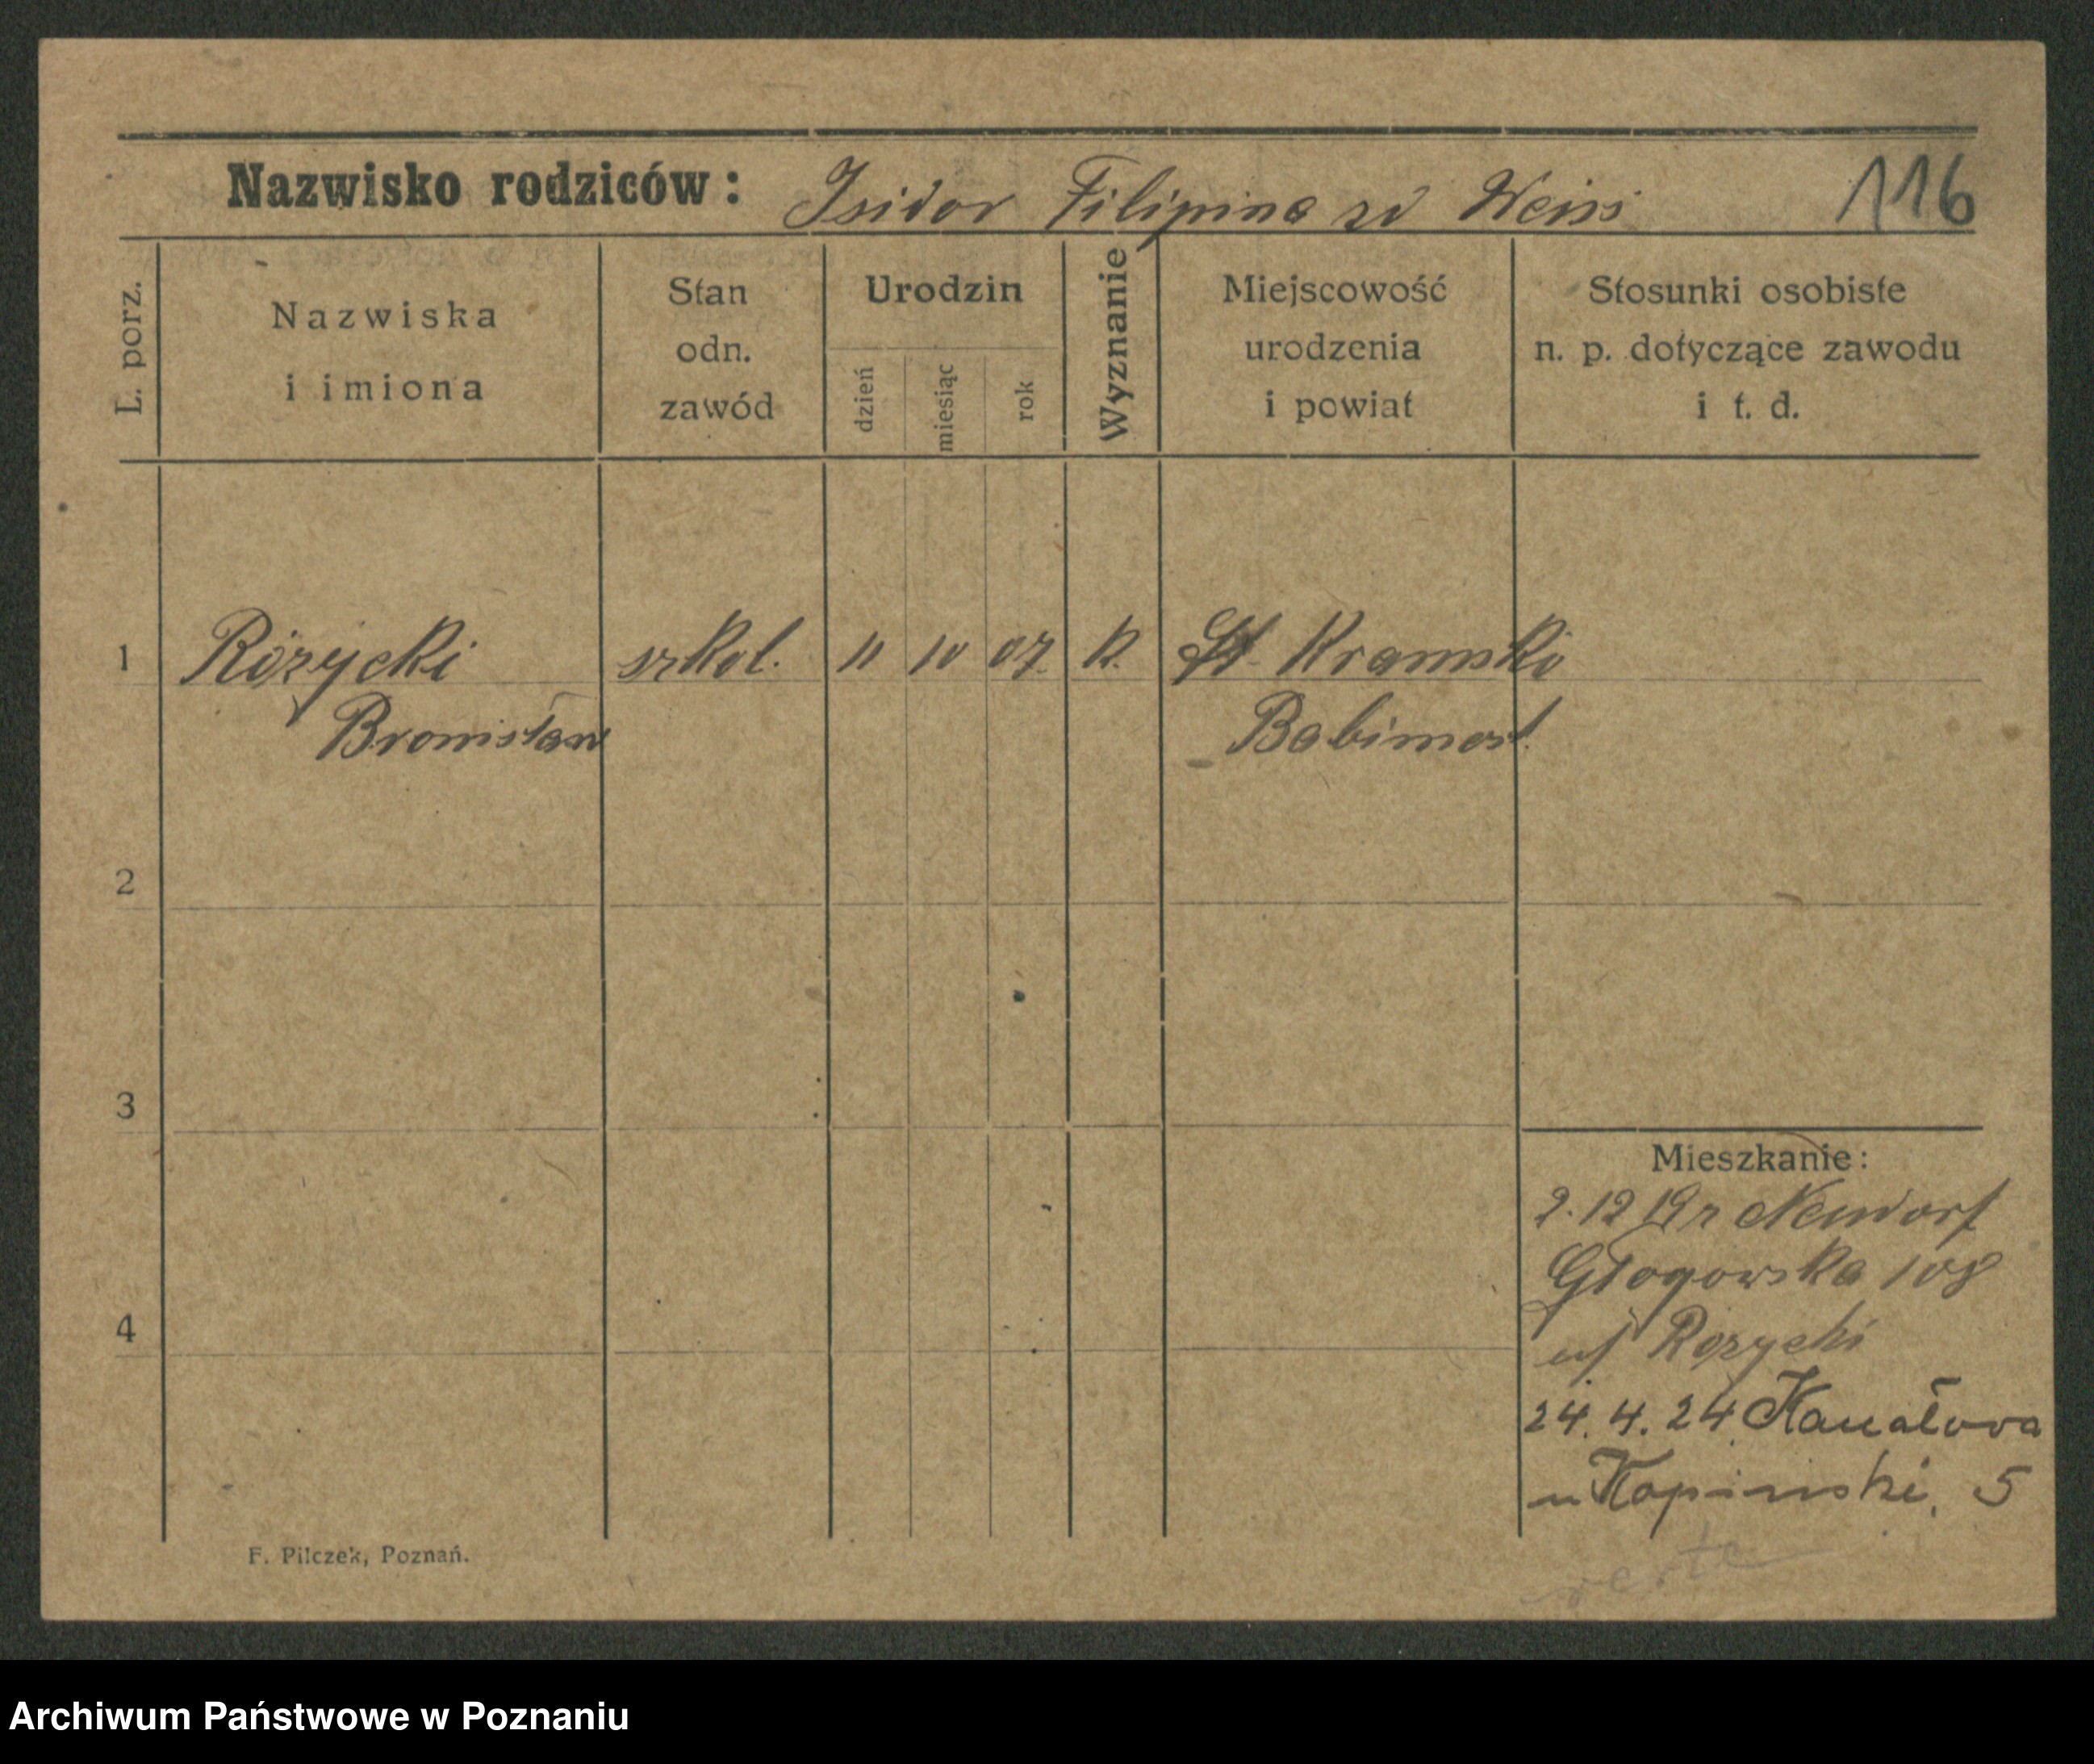 Nazwisko rodziców: Isidor Filipina zd Weiss 116
L. porz.
Nazwiska i imiona
Stan odn. zawód
Urodzin
dzień
miesiąc
rok
Wyznanie
Miejscowość urodzenia i powiat
Stosunki osobiste n. p. dotyczące zawodu i t. d.
1 Różycki szkol. 11 10 07 k. St Kramsko
Bronisław Babimost
2
3
4
Mieszkanie:
2.12 19 z Neudorf
Głogowska 108
Rozycki
24. 4. 24 Kanałowa
u Kapiński, 5
verte
F. Pilczek, Poznań.
Archiwum Państwowe w Poznaniu